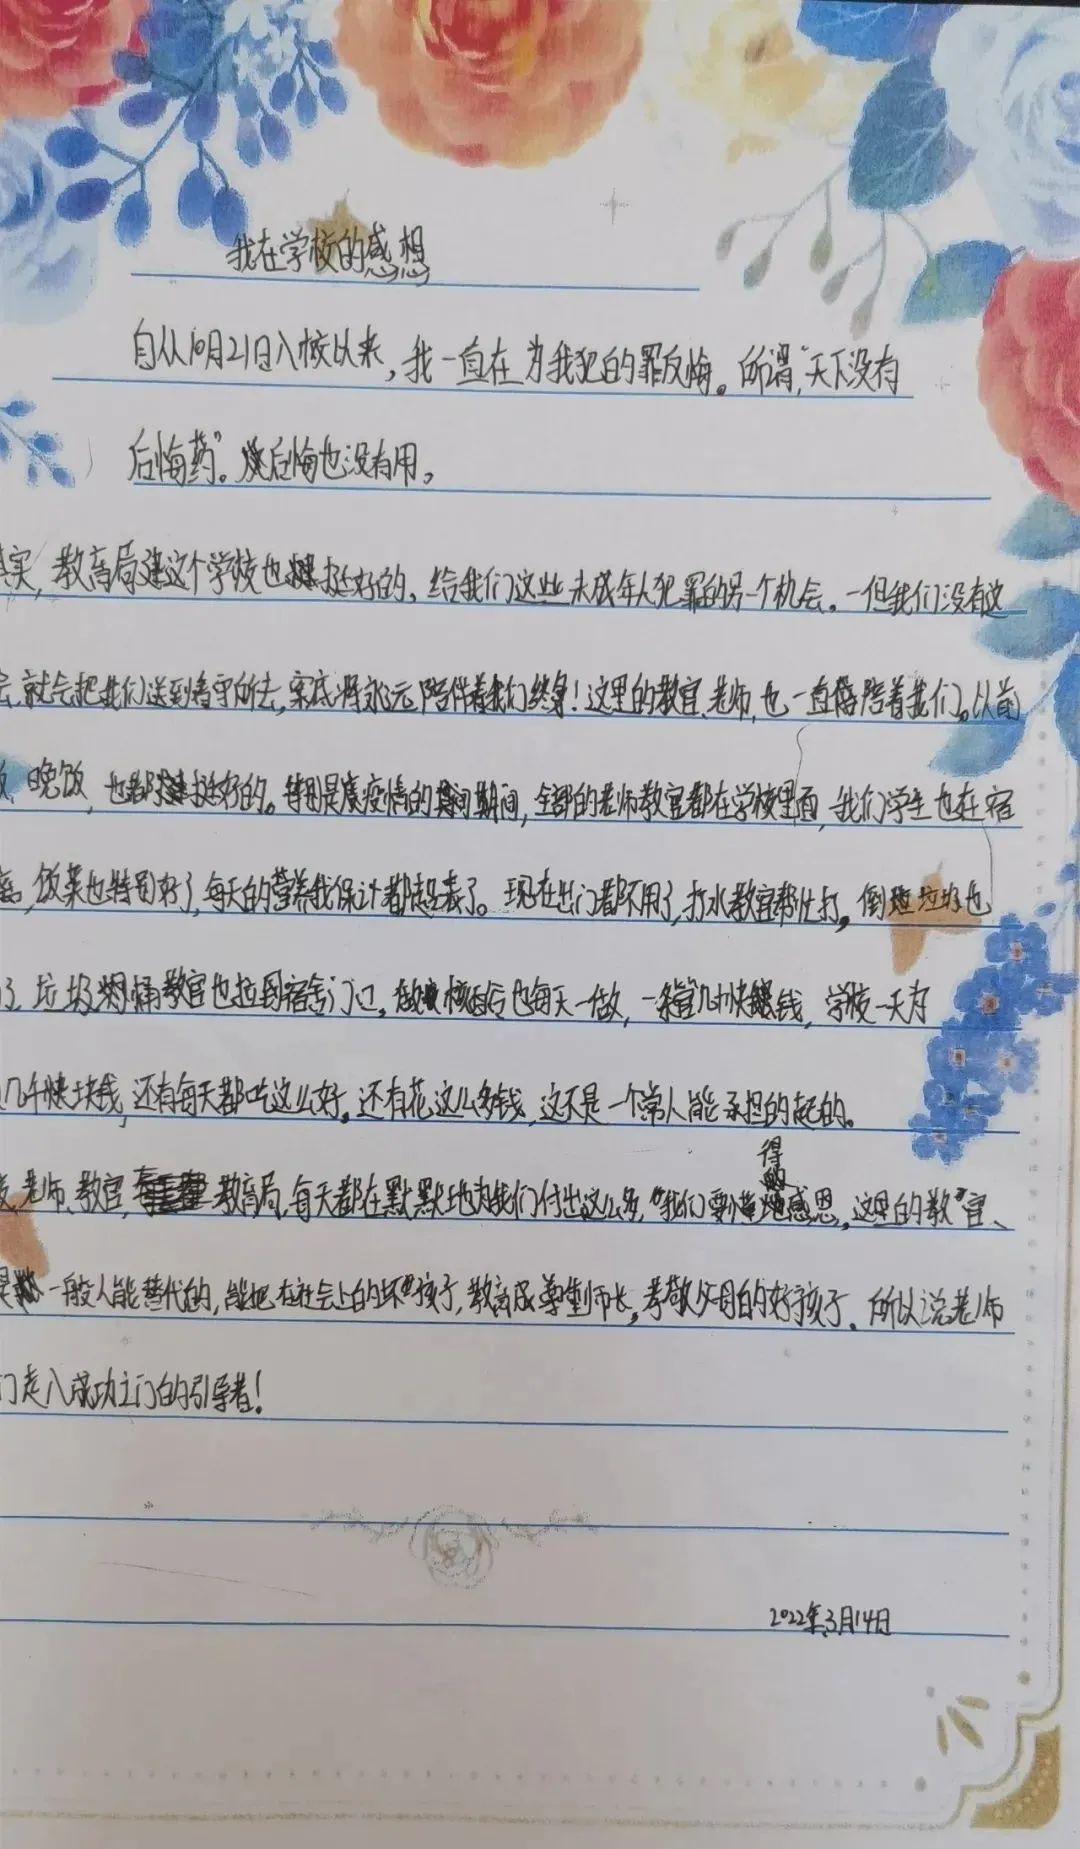 我在学校的感想
自从10月21日入校以来，我一直在为我犯的罪反悔。所谓，“天下没有
后悔药”。后悔也没有用。
其实，教育局建这个学校也挺好的，给我们这些未成年人犯罪的另一个机会。一但我们没有这
会，就会把我们送到看守所去，案底将永远陪伴着我们终身！这里的教官、老师，也一直陪着我们。以前
饭、晚饭，也都挺好的。特别是疫情的期间，全部的老师教官都在学校里面，我们学生也在宿
离，饭菜也特别好了，每天的营养我保计都超表了。现在出门都不用了，打水教官帮忙打，倒垃圾也
了，垃圾桶教官也拉到宿舍门口，核酸也每天一做，一条管几十块钱，学校一天为
几千块钱，还有每天都吃这么好，还有花这么多钱，这不是一个常人能承担的起的。
老师、教官，教育局，每天都在默默地为我们付出这么多，“我们要懂得感恩，这里的教”官、
是一般人能替代的，能把在社会上的坏“孩子，教育成尊重师长，孝敬父母的好孩子、所以说老师
们走入成功之门的引导者！
2022年3月14日